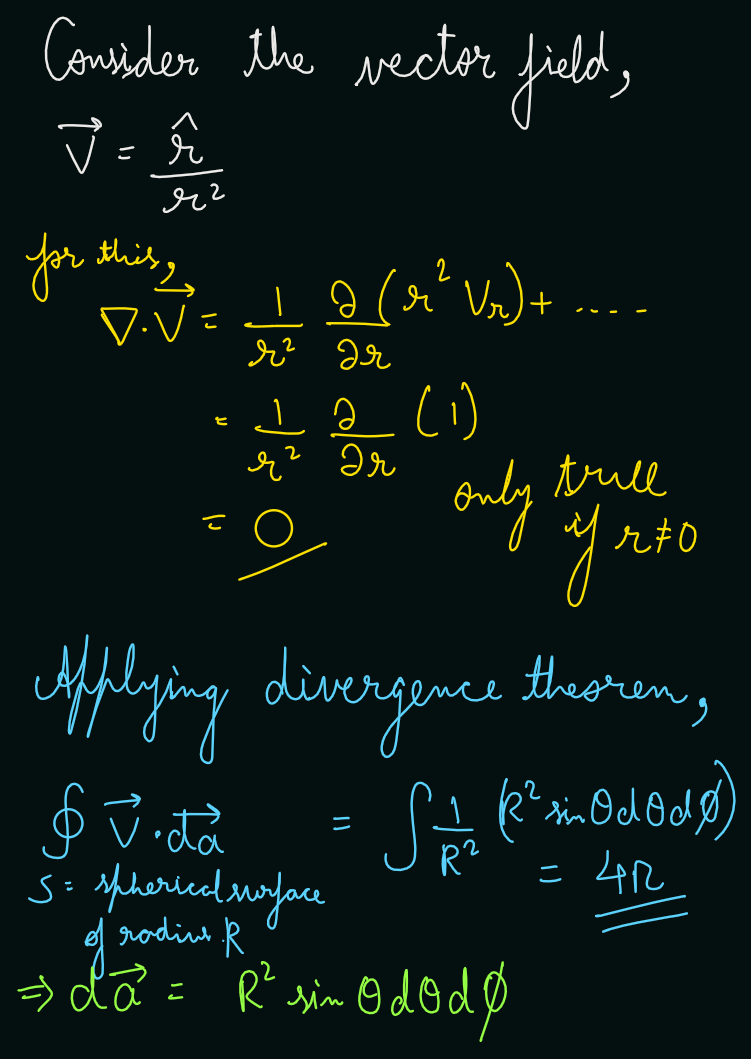 Consider the vector field,
V⃗ = r̂ / r²
for this,
∇·V⃗ = 1/r² ∂/∂r (r² Vr) + ....
= 1/r² ∂/∂r (1)
= 0 only true if r≠0
Applying divergence theorem,
∮ V⃗·da⃗ = ∫ 1/R² (R² sinθdθdϕ)
S = spherical surface = 4π
of radius R
⇒ da⃗ = R² sinθdθdϕ